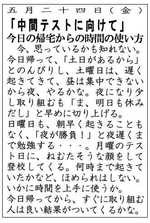 五月二十四日（金）
「中間テストに向けて」
今日の帰宅からの時間の使い方
今、思っているかも知れない。
今日帰って、「土日があるから」
とのんびりし、土曜日は、遅く
起きてきて、昼は集中できない
から夜、やるかな。夜になり少
し取り組むも「ま、明日も休み
だし」と早めに切り上げる。
日曜日も、朝早く起きることも
なく、「夜が勝負！」と夜遅くま
で勉強する・・・。月曜日のテ
スト日に、ねむたそうな顔をし
て登校してくる。何時まで起きて
いたかなど、のほめられはしない。
いかに時間を上手に使うか。
今日帰ってから、すぐに取り組む
人は良い結果がついてくるかな。